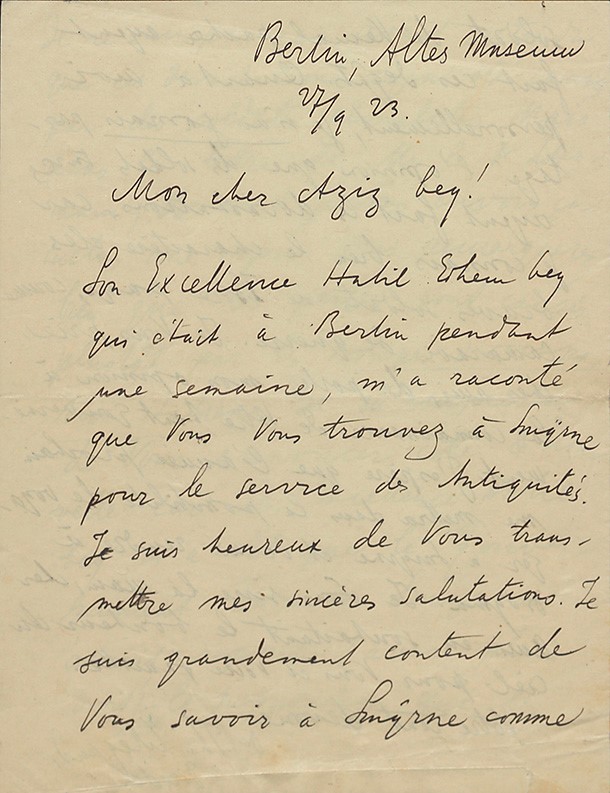 Berlin, Altes Museum
27/9 23.
Mon cher Aziz bey!
Son Excellence Halil Edhem bey
qui était à Berlin pendant
une semaine, m'a raconté
que Vous Vous trouvez à Smÿrne
pour le service des Antiquités.
Je suis heureux de Vous trans-
mettre mes sincères salutations. Je
suis grandement content de
Vous savoir à Smÿrne comme